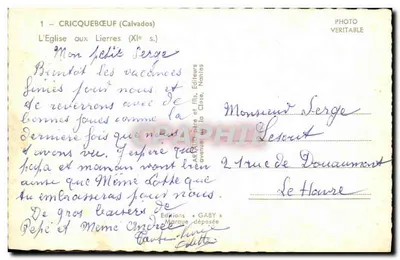 1 - CRICQUEBŒUF (Calvados)
L'Eglise aux Lierres (XIe s.)
PHOTO
VERITABLE
Mon petit Serge
Bientôt les vacances
finies pour nous et
te reverrons avec de
bonnes joues comme la
dernière fois que nous
t'avons vu. J'espère que
papa et maman vont bien
ainsi que Mémé Lotte que
tu embrasseras pour nous.
De gros baisers de
Pépé et Mémé Andrée
Colette
Monsieur Serge
Lesout
2 rue de Douaumont
Le Havre
et fils, Editeurs
de la Close, Nantes
Editions "GABY"
Marque déposée